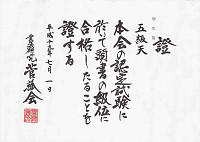 證
五級天
本会の認定試験に
於て頭書の級位に
合格したることを
證する
平成十五年七月一日
書研究菅菰会